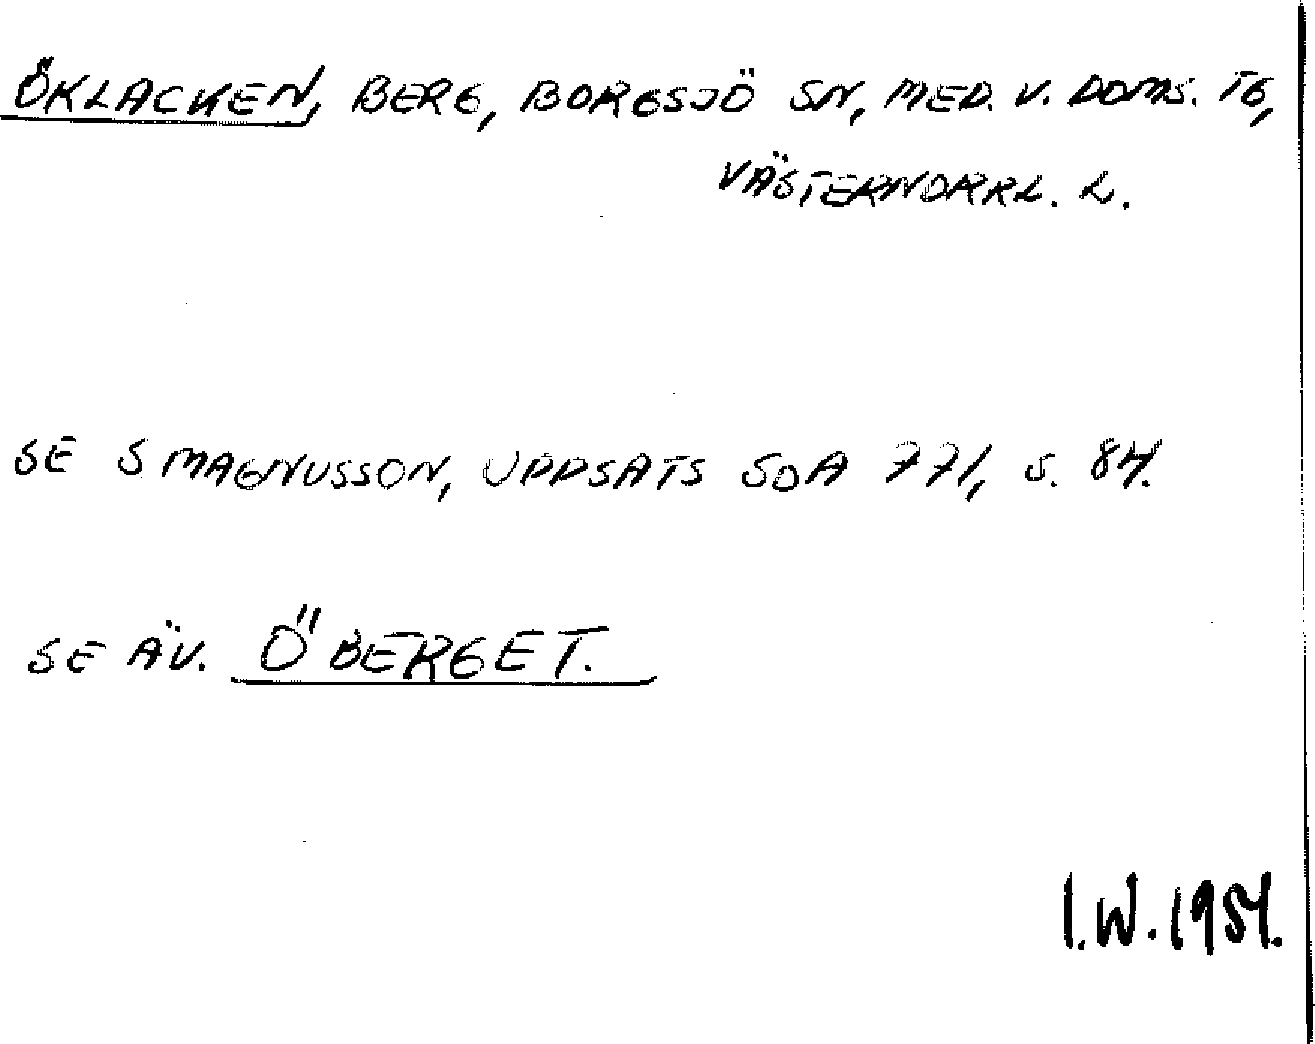 ÖKLACKEN, BERG, BORGSJÖ SN, MED. V. DOMS. TG,
VÄSTERNORRL. L.
SE S MAGNUSSON, UPPSATS SOA 771, S. 84.
SE ÄV. ÖBERGET.
I.W. 1951.